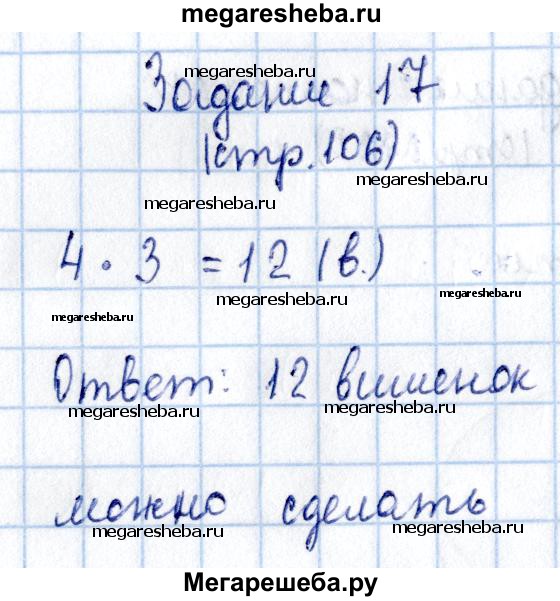 megaresheba.ru
megaresheba.ru
Задание 17
(стр. 106)
megaresheba.ru
megaresheba.ru
4 · 3 = 12 (в.)
megaresheba.ru
megaresheba.ru
megaresheba.ru
Ответ: 12 вишенок
megaresheba.ru
megaresheba.ru
можно сделать
megaresheba.ru
megaresheba.ru
Мегарешеба.ру